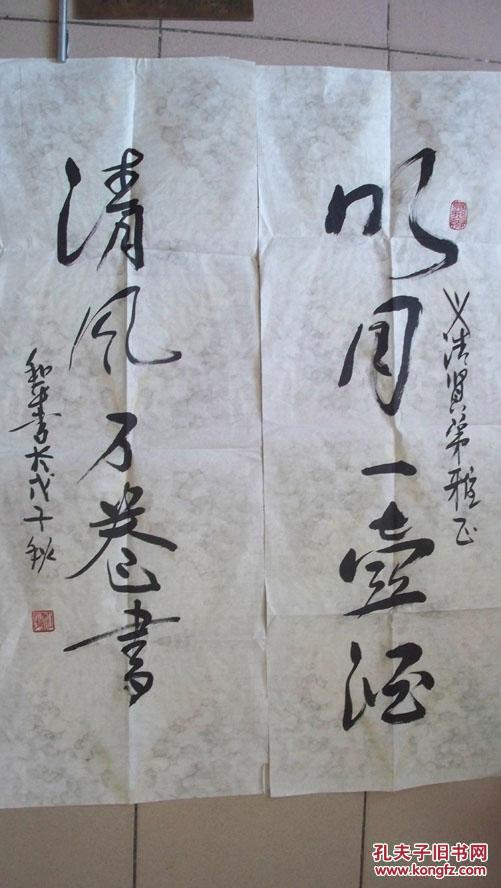 明月一壶酒
义浩贤弟雅正
清风万卷書
书於戊子秋
孔夫子旧书网
www.kongfz.com